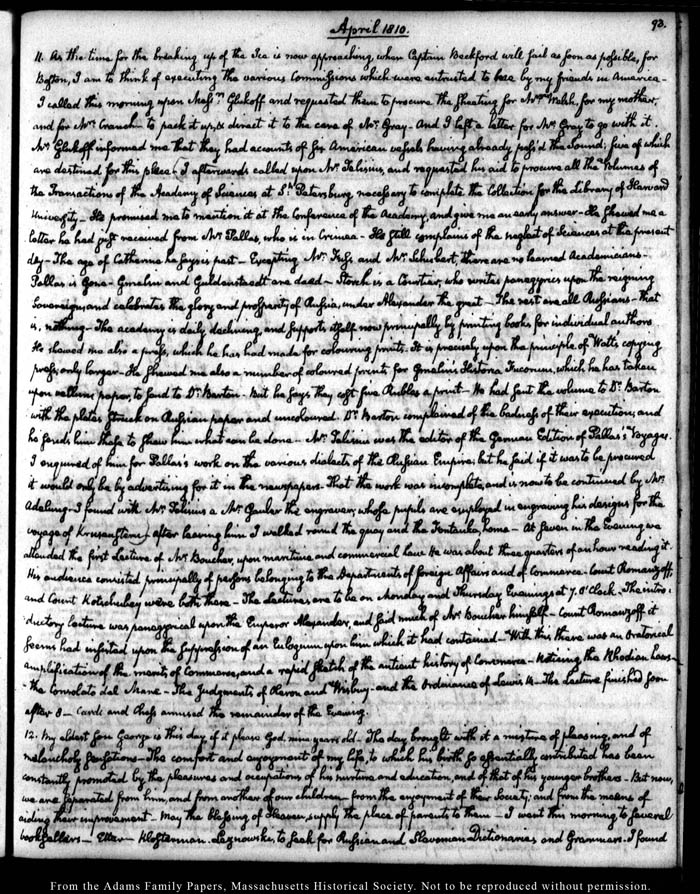 April 1810.
93.
11. As the time for the breaking up of the Ice is now approaching, when Captain Beckford will sail as soon as possible, for
Boston, I am to think of executing the various Commissions which were entrusted to me by my friends in America—
I called this morning upon Messrs. Glukoff and requested them to procure the sheeting for Mrs. Welsh, for my mother,
and for Mrs. Cranch—to pack it up, & direct it to the care of Mr. Gray—And I left a letter for Mr. Gray to go with it.
Mr. Glukoff informed me that they had accounts of six American vessels having already pass'd the Sound; five of which
are destined for this place—I afterwards called upon Mr. Tilesius, and requested his aid to procure all the Volumes of
the Transactions of the Academy of Sciences at St. Petersburg, necessary to complete the Collection for the Library of Harvard
University—He promised me to mention it at the Conference of the Academy, and give me an early answer—He shewed me a
letter he had just received from Mr. Pallas, who is in Crimea—He still complains of the neglect of Sciences at the present
day—The age of Catherine he says is past—Excepting Mr. Fuss and Mr. Schubert, there are no learned Academicians—
Pallas is gone—Gmelin and Guldenstaedt are dead—Storch is a Courtier, who writes panegyrics upon the reigning
Sovereign, and celebrates the glory and prosperity of Russia, under Alexander the great—The rest are all Russians—that
is, nothing—The academy is daily declining, and supports itself now principally by printing books for individual authors
He shewed me also a press, which he has had made for colouring prints. It is precisely upon the principle of Watts copying
press, only larger—He shewed me also a number of coloured prints for Gmelin's Historia Fucorum, which he has taken
upon vellum paper, to send to Dr. Barton—But he says they cost five Rubles a print—He had sent the volume to Dr. Barton
with the plates struck on Russian paper and uncoloured. Dr. Barton complained of the badness of their execution; and
he sends him these to shew him what can be done—Mr. Tilesius was the editor of the German Edition of Pallas's Voyages.
I enquired of him for Pallas's work on the various dialects of the Russian Empire; but he said if it was to be procured
it would only be by advertising for it in the newspapers. That the work was incomplete, and is now to be continued by Mr.
Adelung—I found with Mr. Tilesius a Mr. the engraver, whose pupils are employed in engraving his designs for the
voyage of Krusenstern) after leaving him I walked round the quay and the Fontanka, home—At seven in the Evening we
attended the first Lecture of Mr. Boucher, upon maritime and commercial law. He was about three quarters of an hour reading it.
His audience consisted principally of persons belonging to the Departments of foreign Affairs and of Commerce. Count Romanzoff,
and Count Kotschubey were both there—The lectures are to be on Monday and Thursday Evenings at 7. O'Clock. The intro:
ductory lecture was panegyrical upon the Emperor Alexander, and said much of Mr. Boucher himself—Count Romanzoff it
seems had insisted upon the suppression of an Eulogium upon him which it had contained—With this there was an Oratorical
amplification of the merits of Commerce, and a rapid sketch of the antient history of Commerce—Noticing the Rhodian laws—
the Consolato del Mare—The Judgments of Oleron and Wisbuy—and the Ordinance of Lewis 14—The Lecture finished soon
after 8—Cards and Chess amused the remainder of the Evening.
12. My eldest Son George is this day if it please God, nine years old. The day brought with it a mixture of pleasing, and of
melancholy sensations—The comfort and enjoyment of my life, to which his birth so essentially contributed has been
constantly promoted by the pleasures and occupations of his nurture and education, and of that of his younger brothers—But now,
we are separated from him, and from another of our children—from the enjoyment of their Society; and from the means of
aiding their improvement—May the blessing of Heaven, supply the place of parents to them—I went this morning to several
booksellers—Etter—Klosterman—to seek for Russian and Slavonian Dictionaries and Grammars. I found
From the Adams Family Papers, Massachusetts Historical Society. Not to be reproduced without permission.